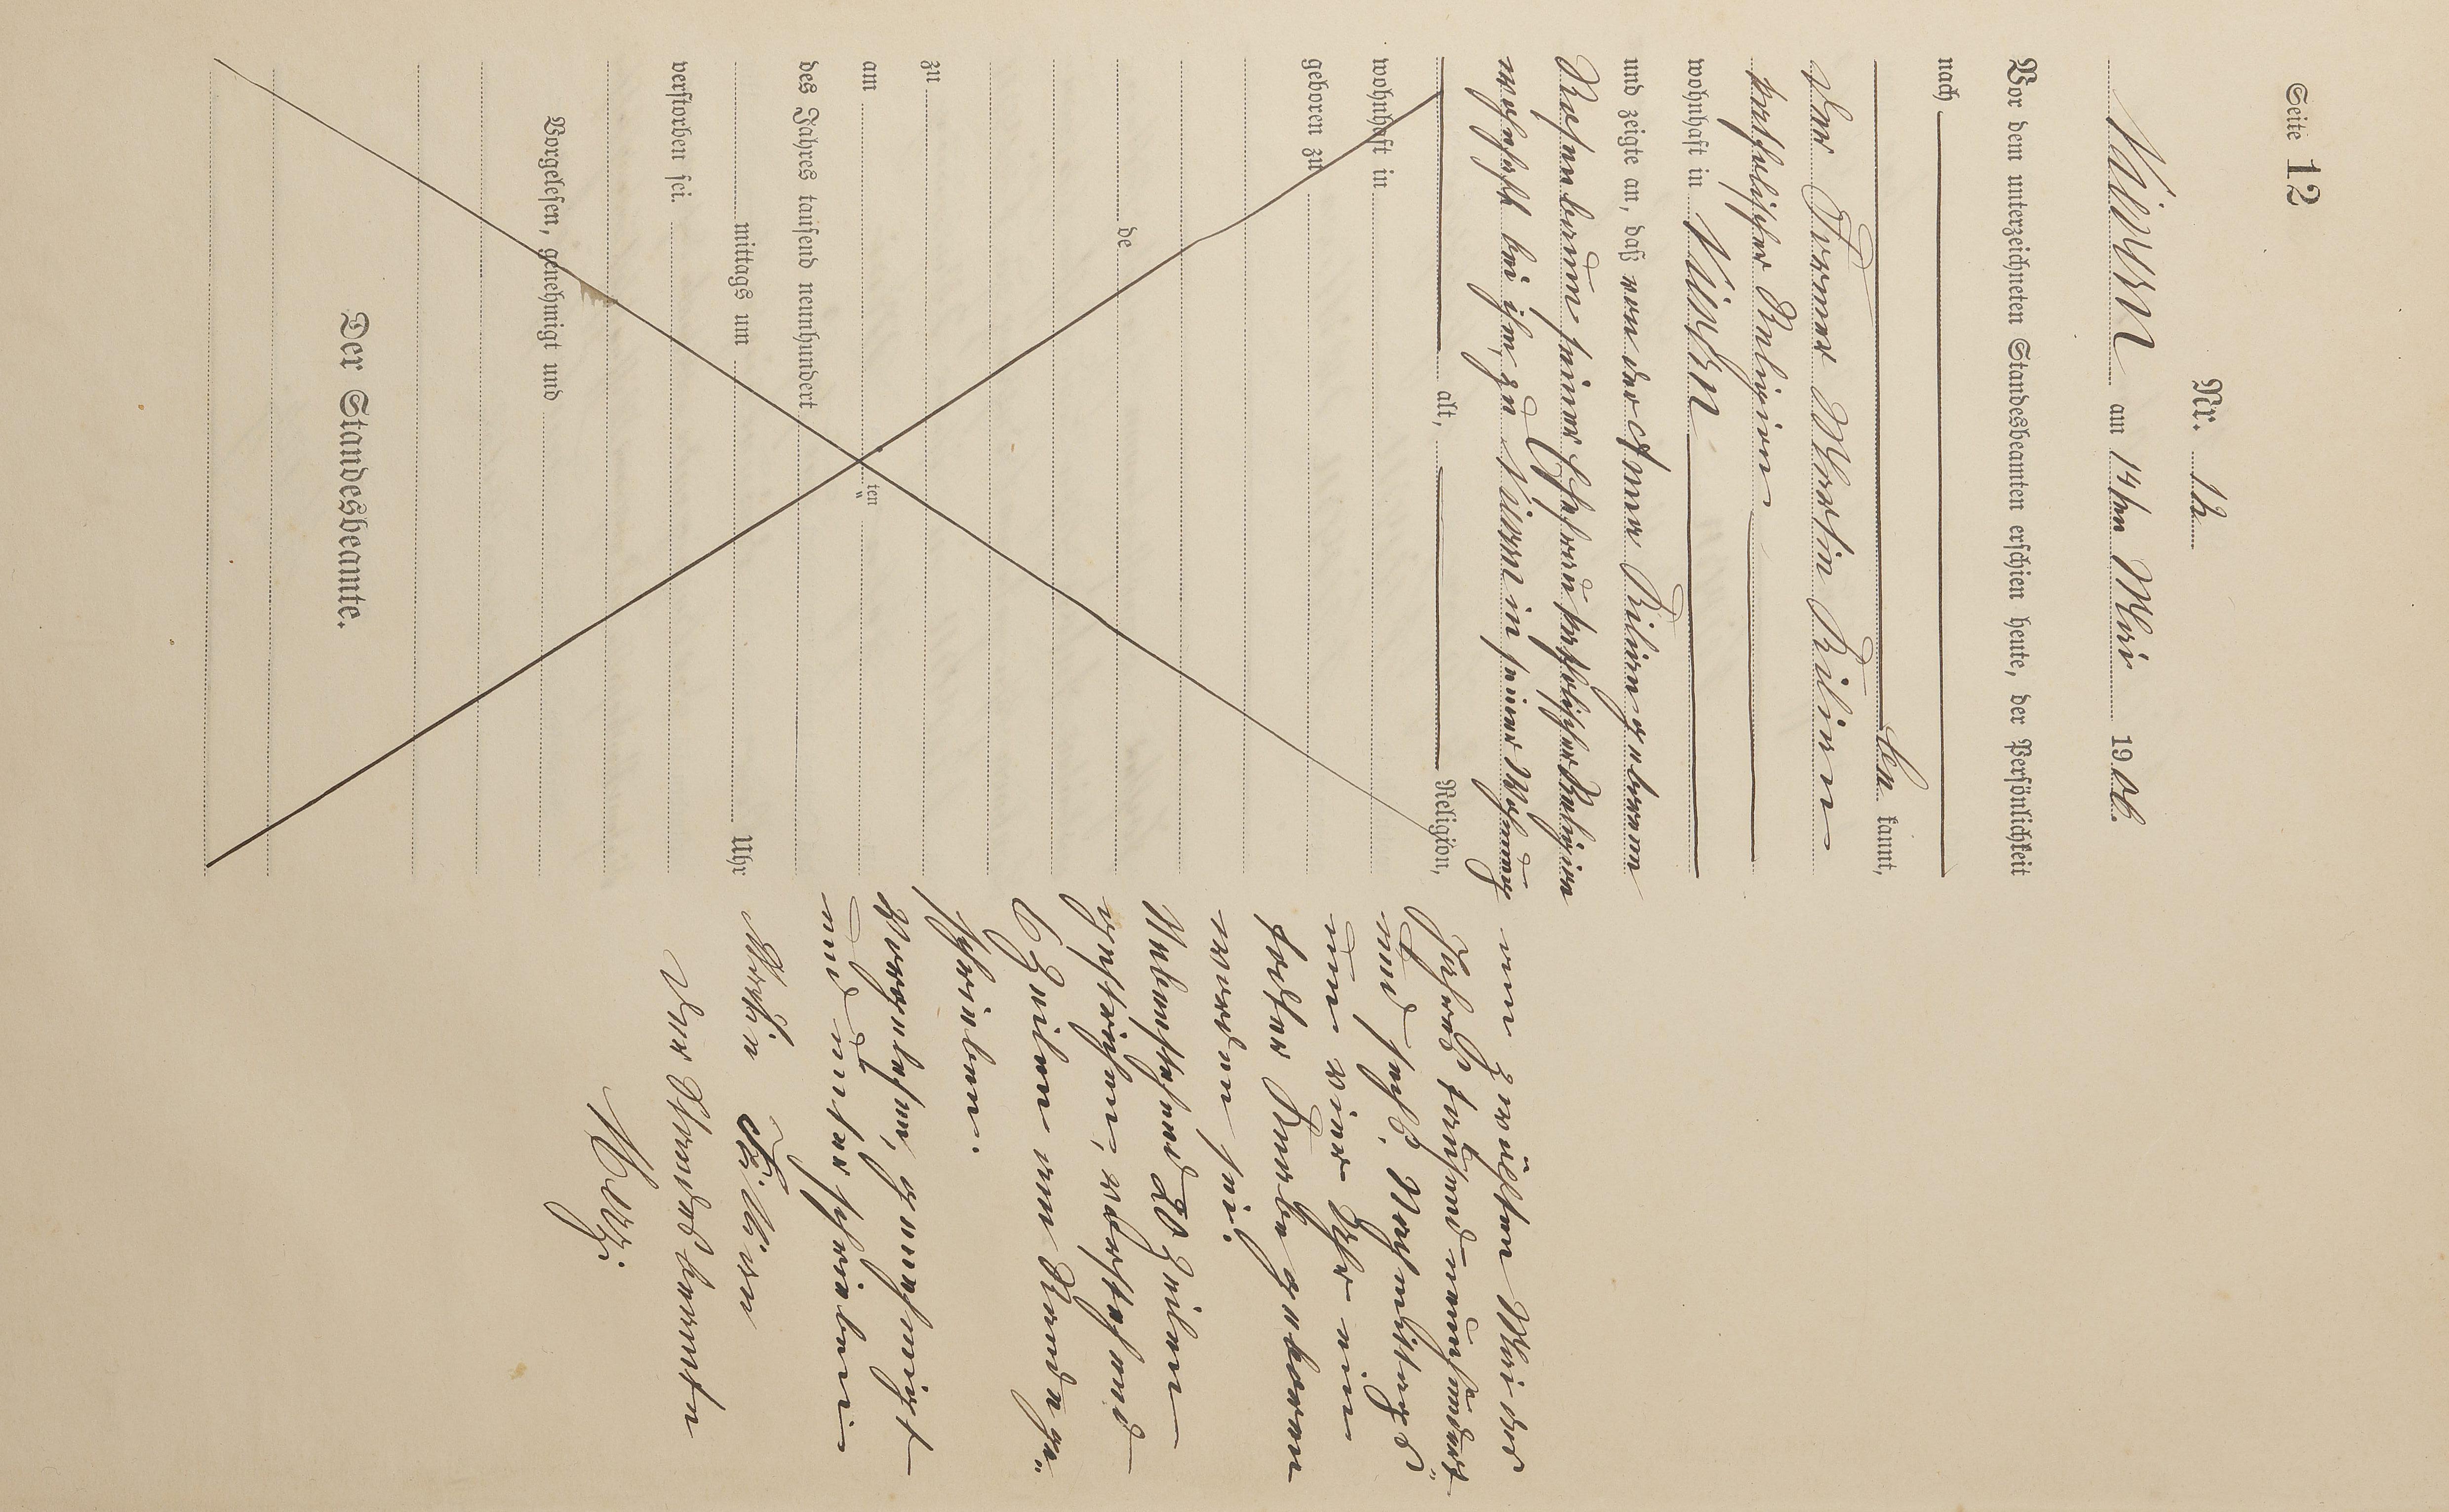 Seite 12
Nr. 12
Niesen am 14ten Mai 1906.
Vor dem unterzeichneten Standesbeamten erschien heute, der Persönlichkeit
nach
be kannt,
der Martin Kilian
katholischer Religion
wohnhaft in Niesen
und zeigte an, daß von der Anna Kilian geborenen
Rosenbaum seiner Ehefrau katholischer Religion
wohnhaft bei ihm, zu Niesen in seiner Wohnung
alt, Religion,
wohnhaft in
geboren zu
de
zu
am ten
des Jahres tausend neunhundert
mittags um Uhr
verstorben sei.
Vorgelesen, genehmigt und
Der Standesbeamte.
am zwölften Mai des
Jahres tausend neunhundert
und sechs, Nachmittags
um vier Uhr ein
todter Knabe geboren
worden sei.
Nebenstehend 20 Zeilen
gestrichen, vorstehend
6 Zeilen am Rande ge"
schrieben.
Vorgelesen, genehmigt
und unterschrieben
Martin Kilian
Der Standesbeamte